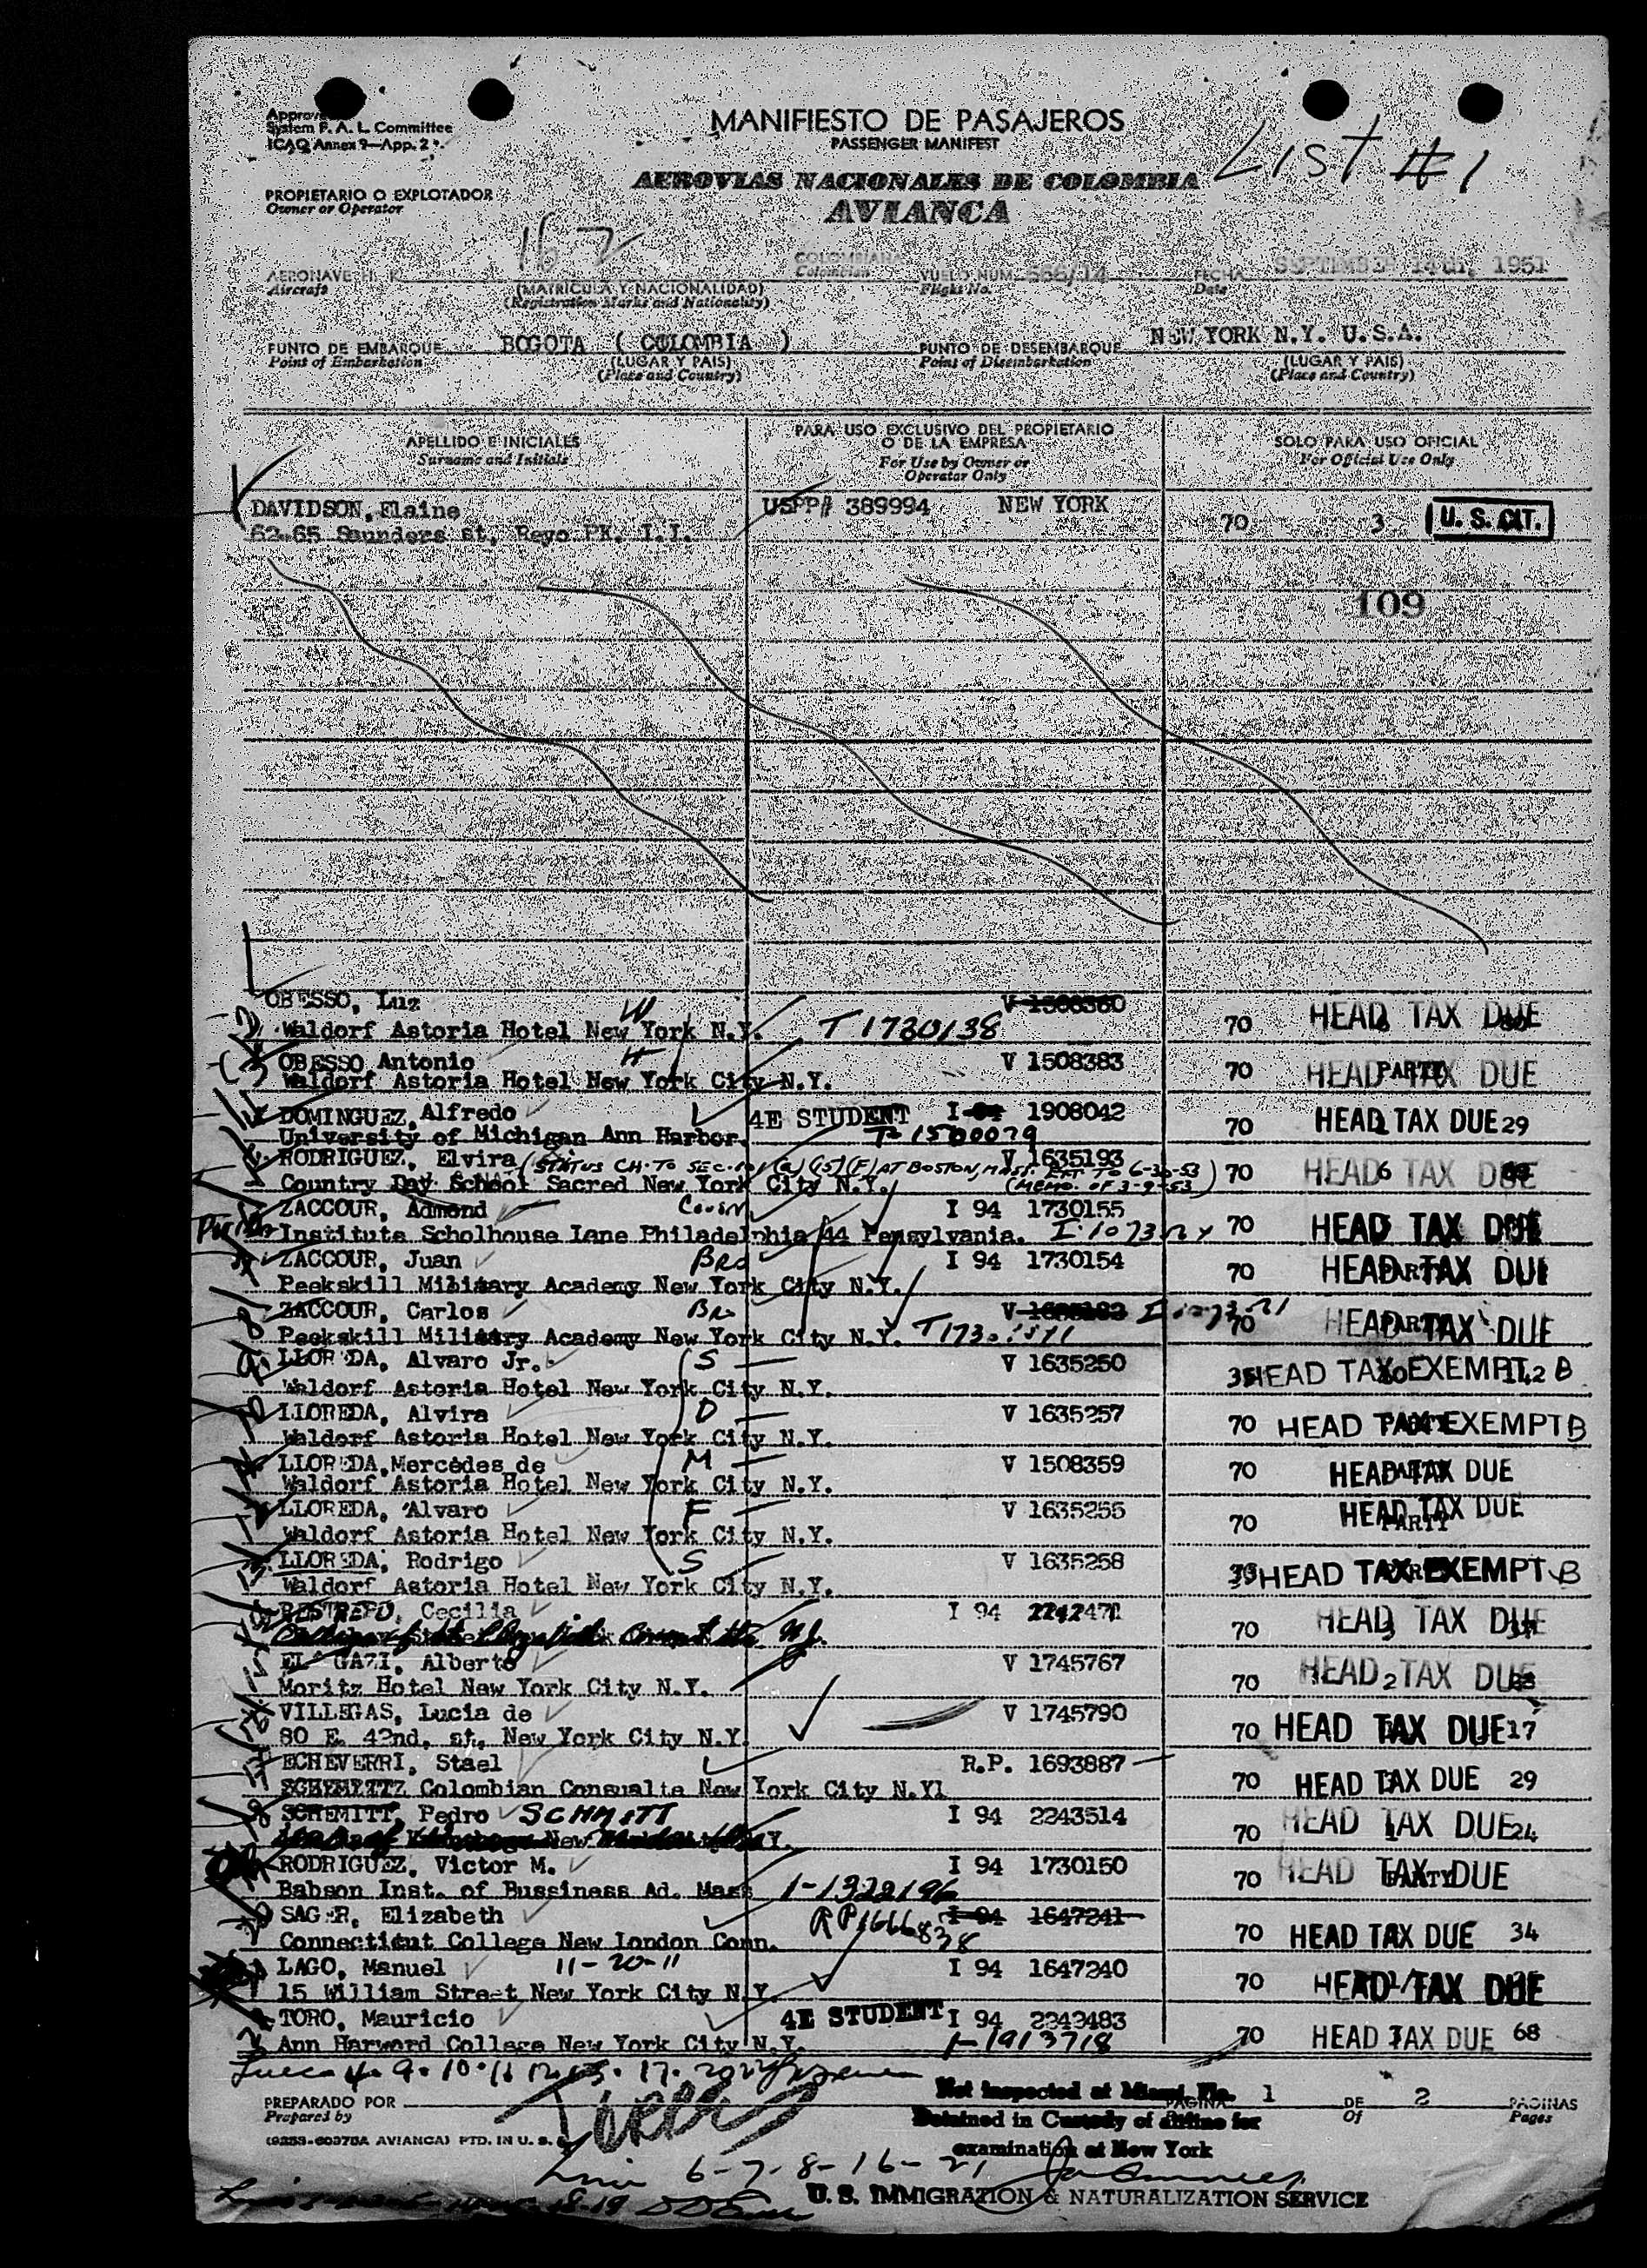 Approved
System F. A. L. Committee
ICAO Annex 9—App. 2
MANIFIESTO DE PASAJEROS
PASSENGER MANIFEST
LIST #1
PROPIETARIO O EXPLOTADOR
Owner or Operator
AEROVIAS NACIONALES DE COLOMBIA
AVIANCA
AERONAVE H. K. 162 COLOMBIANA VUELO NUM. 566/14 FECHA SEPTEMBER 14th, 1951
Aircraft (MATRICULA Y NACIONALIDAD) Colombian Flight No. Date
(Registration Marks and Nationality)
PUNTO DE EMBARQUE BOGOTA ( COLOMBIA ) PUNTO DE DESEMBARQUE NEW YORK N.Y. U.S.A.
Point of Embarkation (LUGAR Y PAIS) Point of Disembarkation (LUGAR Y PAIS)
(Place and Country) (Place and Country)
APELLIDO E INICIALES PARA USO EXCLUSIVO DEL PROPIETARIO O DE LA EMPRESA SOLO PARA USO OFICIAL
Surname and Initials For Use by Owner or Operator Only For Official Use Only
DAVIDSON, Elaine USPP# 389994 NEW YORK 70 3 U. S. CIT.
62-65 Saunders st, Rego PK. I.I.
109
OBESSO, Luz W V 1508360
Waldorf Astoria Hotel New York N.Y. T1730138 70 HEAD TAX DUE
OBESSO Antonio H V 1508383
Waldorf Astoria Hotel New York City N.Y. 70 HEAD TAX DUE PARTY
DOMINGUEZ, Alfredo 4E STUDENT I 94 1908042
University of Michigan Ann Harbor. T-1500079 70 HEAD TAX DUE 29
RODRIGUEZ, Elvira V 1635193
(STATUS CH. TO SEC. 101 (a) (15) (F) AT BOSTON, MASS. EXT. TO 6-30-53) (MEMO. OF 3-9-53)
Country Day School Sacred New York City N.Y. 70 HEAD TAX DUE 6
ZACCOUR, Admond Cousin I 94 1730155
Institute Scholhouse Lane Philadelphia 44 Pensylvania. 70 HEAD TAX DUE
ZACCOUR, Juan Bro I 94 1730154
Peekskill Military Academy New York City N.Y. 70 HEAD TAX DUE PARTY
ZACCOUR, Carlos Bro
Peekskill Military Academy New York City N.Y. 70 HEAD TAX DUE PARTY
LLOREDA, Alvaro Jr. S V 1635250
Waldorf Astoria Hotel New York City N.Y. 35 HEAD TAX EXEMPT B
LLOREDA, Alvira D V 1635257
Waldorf Astoria Hotel New York City N.Y. 70 HEAD TAX EXEMPT B
LLOREDA, Mercedes de M V 1508359
Waldorf Astoria Hotel New York City N.Y. 70 HEAD TAX DUE PARTY
LLOREDA, Alvaro F V 1635255
Waldorf Astoria Hotel New York City N.Y. 70 HEAD TAX DUE PARTY
LLOREDA, Rodrigo S V 1635258
Waldorf Astoria Hotel New York City N.Y. 35 HEAD TAX EXEMPT B
RESTREPO, Cecilia I 94 2242471
70 HEAD TAX DUE
EL GAZI, Alberto V 1745767
Moritz Hotel New York City N.Y. 70 HEAD TAX DUE 2
VILLEGAS, Lucia de V 1745790
80 E. 42nd. st. New York City N.Y. 70 HEAD TAX DUE 17
ECHEVERRI, Stael R.P. 1693887
Colombian Consualte New York City N.Y1 70 HEAD TAX DUE 29
SCHEMITT, Pedro SCHMITT I 94 2243514
New Y. 70 HEAD TAX DUE 24
RODRIGUEZ, Victor M. I 94 1730150
Babson Inst. of Bussiness Ad. Mass 1-1322196 70 HEAD TAX DUE PARTY
SAGER, Elizabeth RP 1666838 I 94 1647241
Connecticut College New London Conn. 70 HEAD TAX DUE 34
LAGO, Manuel 11-20-11 I 94 1647240
15 William Street New York City N.Y. 70 HEAD TAX DUE
TORO, Mauricio 4E STUDENT I 94 2242483
Ann Harward College New York City N.Y. 1-1913718 70 HEAD TAX DUE 68
PREPARADO POR PAGINA 1 DE 2 PAGINAS
Prepared by Of Pages
(9253-60375A AVIANCA) PTD. IN U. S. A.
Not inspected at Miami, Fla.
Detained in Custody of airline for
examination at New York
6-7-8-16-21
U. S. IMMIGRATION & NATURALIZATION SERVICE